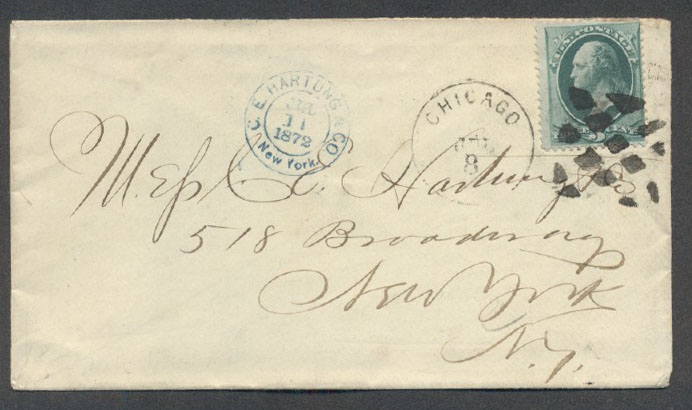 U.S. POSTAGE
C. E. HARTUNG & CO
11
1872
New York.
CHICAGO
8
Mess C. E. Hartung & Co
518 Broadway
New York
N.Y.